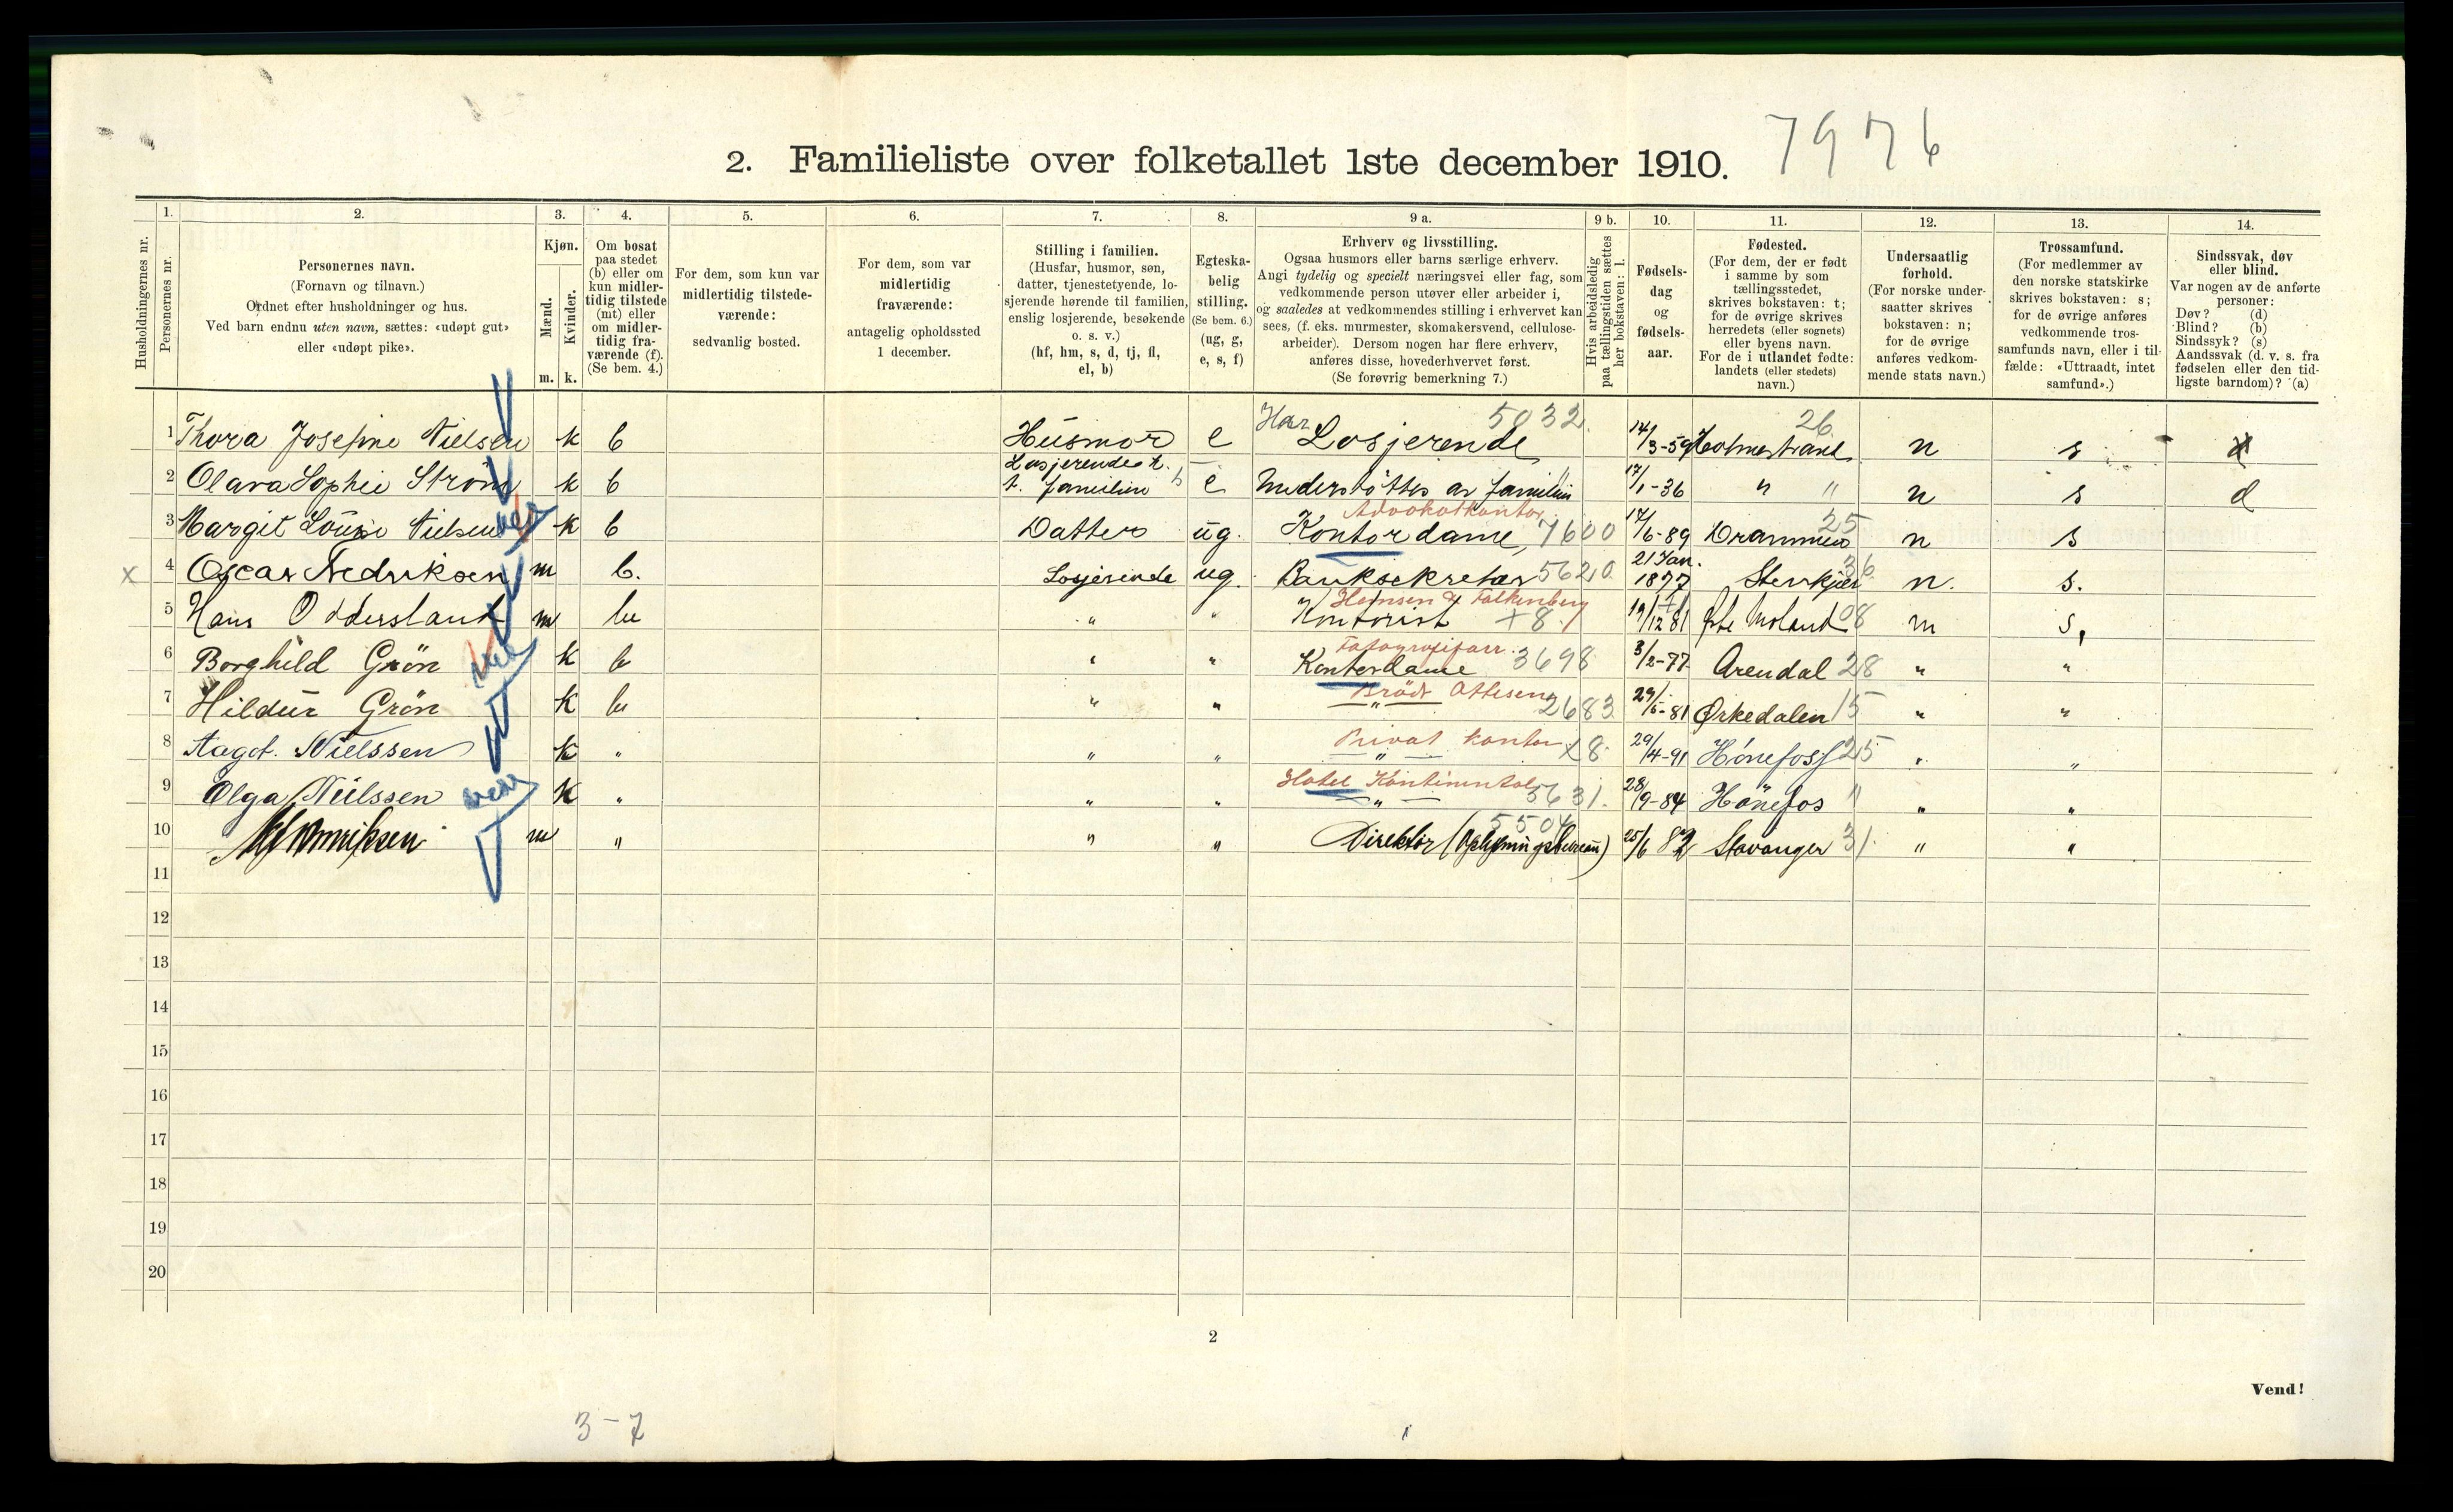 7976
2. Familieliste over folketallet 1ste december 1910.
Husholdningernes nr.
1.
Personernes nr.
2.
Personernes navn.
(Fornavn og tilnavn.)
Ordnet efter husholdninger og hus.
Ved barn endnu uten navn, sættes: «udøpt gut»
eller «udøpt pike».
3.
Kjøn.
Mænd.
Kvinder.
m. k.
4.
Om bosat
paa stedet
(b) eller om
kun midler-
tidig tilstede
(mt) eller
om midler-
tidig fra-
værende (f).
(Se bem. 4.)
5.
For dem, som kun var
midlertidig tilstede-
værende:
sedvanlig bosted.
6.
For dem, som var
midlertidig
fraværende:
antagelig opholdssted
1 december.
7.
Stilling i familien.
(Husfar, husmor, søn,
datter, tjenestetyende, lo-
sjerende hørende til familien,
enslig losjerende, besøkende
o. s. v.)
(hf, hm, s, d, tj, fl,
el, b)
8.
Egteska-
belig
stilling.
(Se bem. 6.)
(ug, g,
e, s, f)
9 a.
Erhverv og livsstilling.
Ogsaa husmors eller barns særlige erhverv.
Angi tydelig og specielt næringsvei eller fag, som
vedkommende person utøver eller arbeider i,
og saaledes at vedkommendes stilling i erhvervet kan
sees, (f. eks. murmester, skomakersvend, cellulose-
arbeider). Dersom nogen har flere erhverv,
anføres disse, hovederhvervet først.
(Se forøvrig bemerkning 7.)
9 b.
Hvis arbeidsledig
paa tællingstiden sættes
her bokstaven: l.
10.
Fødsels-
dag
og
fødsels-
aar.
11.
Fødested.
(For dem, der er født
i samme by som
tællingsstedet,
skrives bokstaven: t;
for de øvrige skrives
herredets (eller sognets)
eller byens navn.
For de i utlandet fødte:
landets (eller stedets)
navn.)
12.
Undersaatlig
forhold.
(For norske under-
saatter skrives
bokstaven: n;
for de øvrige
anføres vedkom-
mende stats navn.)
13.
Trossamfund.
(For medlemmer av
den norske statskirke
skrives bokstaven: s;
for de øvrige anføres
vedkommende tros-
samfunds navn, eller i til-
fælde: «Uttraadt, intet
samfund».)
14.
Sindssvak, døv
eller blind.
Var nogen av de anførte
personer:
Døv? (d)
Blind? (b)
Sindssyk? (s)
Aandssvak (d. v. s. fra
fødselen eller den tid-
ligste barndom)? (a)
Har 5032 26
1 Thora Josefine Nielsen k b Husmor e Losjerende 14/3-59 Holmestrand n s
Losjerende t.
2 Olava Sophie Strøm k b t. familien e Understöttes av familien 17/1-36 " " n s d
Advokatkontor 25
3 Margit Louise Nielsen k b Datter ug. Kontordame, 7600 17/6-89 Drammen n s
21 Jan. 36
x 4 Oscar Fredriksen m b. Losjerende ug. Banksekretær 5620 1877 Stenkjær n. s.
Hansen & Falkenberg
5 Hans Oddersland m b " " Kontorist +8 19/12 81 Øste Moland 08 n s,
Fotografiforr.
6 Borghild Grön k b " " Kontordame 3698 3/2-77 Arendal 28 " "
Brödr Ottesen
7 Hildur Grön k b " " " 2683 29/5-81 Ørkedalen 15 " "
Privat kontor
8 Aagot. Nielssen k " " " " 28 29/4-91 Hönefoss 25 " "
Hotel Kontinental
9 Olga Nielssen k " " " " 5631. 28/9-84 Hönefos " " "
5504
10 m " " " Direktör (Oplysningsbureau) 25/6 82 Stavanger 31 " "
11
12
13
14
15
16
17
18
19
20
2
Vend!
3-7